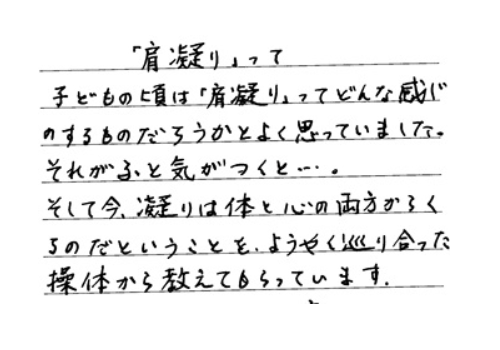 「肩凝り」って
子どもの頃は「肩凝り」ってどんな感じ
のするものだろうかとよく思っていました。
それがふと気がつくと…。
そして今、凝りは体と心の両方からく
るのだということを、ようやく巡り合った
操体から教えてもらっています。